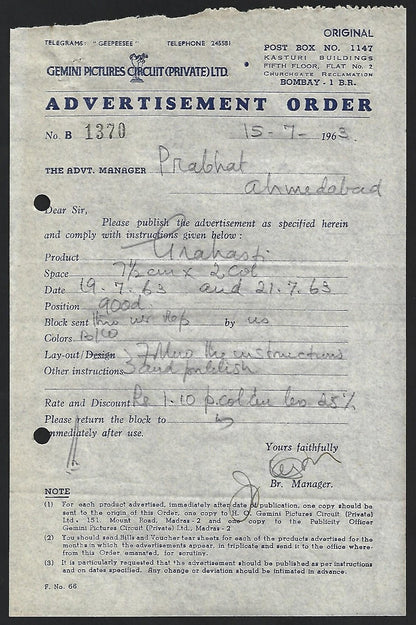 ORIGINAL
TELEGRAMS: "GEEPEESEE" TELEPHONE 245581
POST BOX NO. 1147
KASTURI BUILDINGS
GEMINI PICTURES CIRCUIT (PRIVATE) LTD.
FIFTH FLOOR, FLAT No. 2
CHURCHGATE RECLAMATION
BOMBAY - 1 B.R.
ADVERTISEMENT ORDER
No. B 1370 15-7-1963.
THE ADVT. MANAGER Prabhat
Ahmedabad
Dear Sir,
Please publish the advertisement as specified herein
and comply with instructions given below :
Product Grahasti
Space 7½ cm x 2 col
Date 19.7.63 and 21.7.63
Position good
Block sent thro our rep by us
Colors B/W
Lay-out/Design Follow the instructions
Other instructions and publish
Rate and Discount Rs 1-10 p.col cm less 25%
Please return the block to
immediately after use.
Yours faithfully
Br. Manager.
NOTE
(1) For each product advertised, immediately after date of publication, one copy should be
sent to the origin of this Order, one copy to H. O. Gemini Pictures Circuit (Private)
Ltd., 151, Mount Road, Madras - 2 and one copy to the Publicity Officer
Gemini Pictures Circuit (Private) Ltd., Madras - 2
(2) You should send Bills and Voucher tear sheets for each of the products advertised for the
months in which the advertisements appear, in triplicate and send it to the office where-
from this Order emanated, for scrutiny.
(3) It is particularly requested that the advertisement should be published as per instructions
and on dates specified. Any change or deviation should be intimated in advance.
F. No. 66